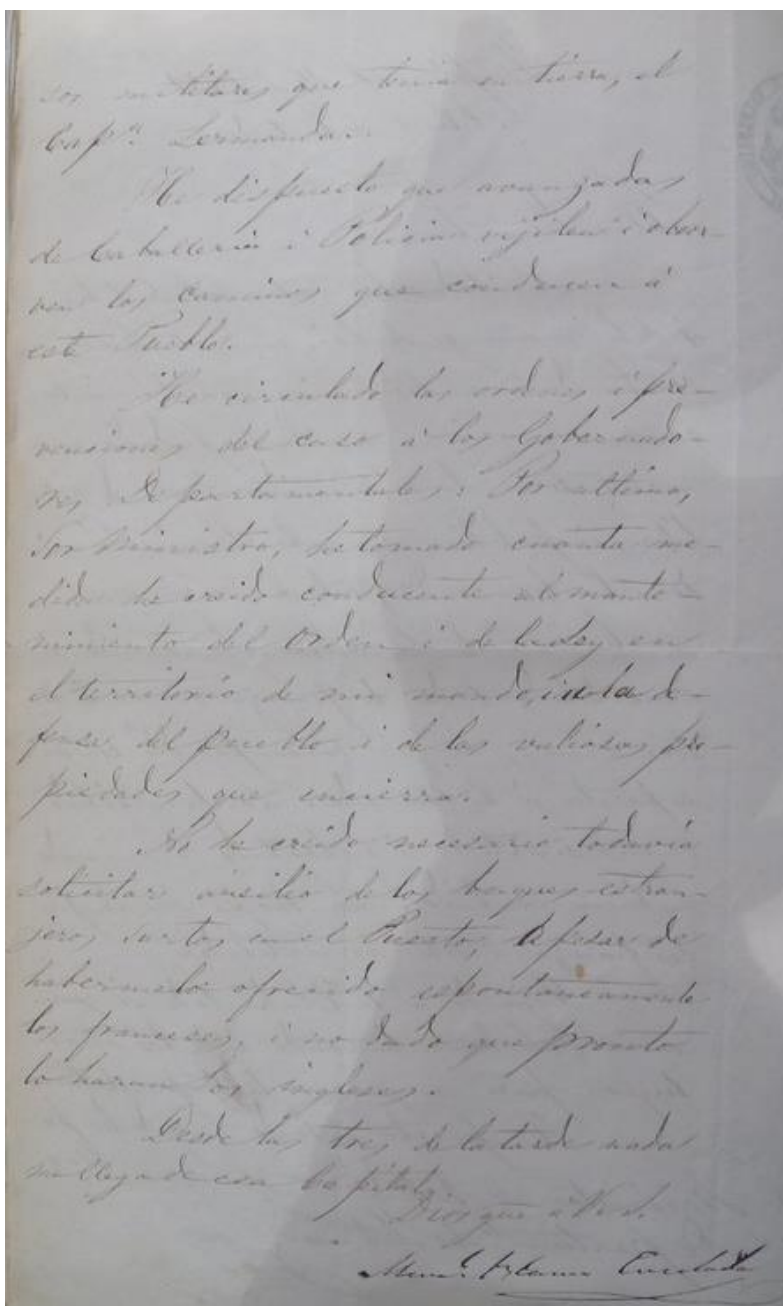 sos militares que tenia en tierra, el
Cap.n Lermanda.
He dispuesto que avanzadas
de Caballeria i Policia vijilen i obser-
ven los caminos que conducen á
este Pueblo.
He circulado las ordenes i pre-
venciones del caso á los Gobernado-
res Departamentales: Por ultimo,
Sor Ministro, he tomado cuanta me-
dida he creido conducente al mante-
nimiento del Orden i de la Ley en
el territorio de mi mando, i a la de-
fensa del pueblo i de las valiosas pro-
piedades que encierra.
No he creido necesario todavia
solicitar ausilio de los buques estran-
jeros surtos en el Puerto, apesar de
habermelo ofrecido espontaneamente
los franceses, i no dudo que pronto
lo haran los ingleses.
Desde las tres de la tarde nada
me llega de esa Capital.
Dios gue á V. S.
Man.l Blanco Encalada